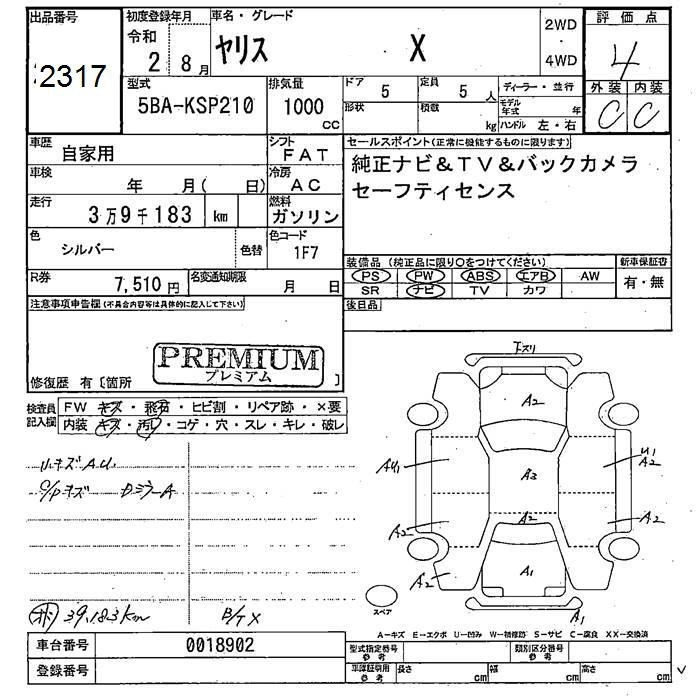 出品番号
2317
初度登録年月
令和
2 8月
車名・グレード
ヤリス X
2WD
・
4WD
評価点
4
外装 内装
C C
型式
5BA-KSP210
排気量
1000
cc
ドア 5
形状
定員 5 人
積載 kg
ディーラー・並行
モデル年式 年
ハンドル 左・右
車歴
自家用
シフト
FAT
車検
年 月( 日)
冷房
AC
走行
3万9千183 km
燃料
ガソリン
色
シルバー
色替
色コード
1F7
R券
7,510円
名変通知期限
月 日
セールスポイント(正常に機能するものに限り)
純正ナビ&TV&バックカメラ
セーフティセンス
装備品 (純正品に限り○をつけてください)
PS PW ABS エアB AW
SR ナビ TV カワ
新車保証書
有・無
後日品
注意事項申告欄(不具合内容等は具体的に記入して下さい)
PREMIUM
プレミアム
修復歴 有〔箇所 〕
検査員
記入欄
FW キズ・飛石・ヒビ割・リペア跡・×要
内装 キズ・汚レ・コゲ・穴・スレ・キレ・破レ
リキズ A.U
C/Pキズ Dミラー A
39,183km
B/T X
A2
A3
A2
A1
AU1
A2
A2
U1
A2
A2
A1
スペア
A−キズ E−エクボ U−凹み W−補修跡 S−サビ C−腐食 XX−交換済
車台番号
0018902
登録番号
型式指定番号
参考
類別区分番号
参考
車庫証明用
参考
長さ cm
幅 cm
高さ cm